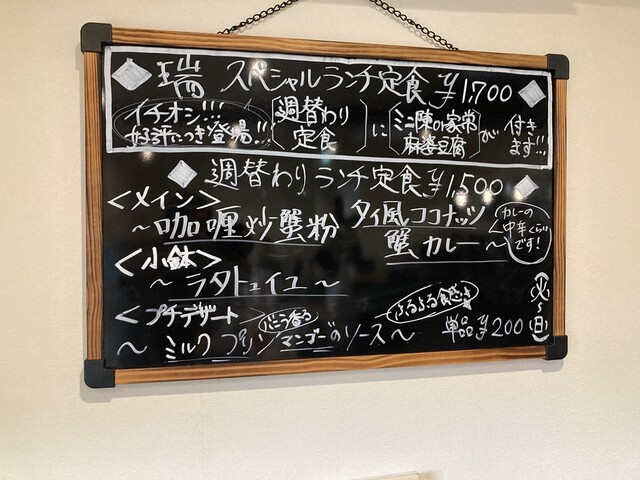 ◆ 瑞 スペシャルランチ定食 ¥1,700 ◆
イチオシ!!! 好評につき登場!!
週替わり定食 に ミニ陳の家常麻婆豆腐 が 付きます!!!
◆ 週替わりランチ定食 ¥1,500 ◆
<メイン>
～咖喱炒蟹粉 タイ風ココナッツ蟹カレー～
カレーの中辛くらいです!
<小鉢>
～ラタトゥイユ～
<プチデザート> バニラ香る ふるふる食感 単品¥200
～ミルクプリン マンゴーのソース～
(火～日)